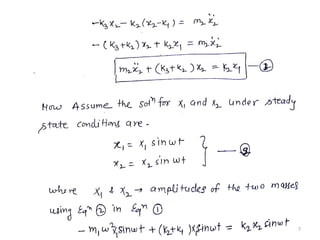 -K₃x₂ - K₂(x₂-x₁) = m₂ẍ₂
-(K₃+K₂)x₂ + K₂x₁ = m₂ẍ₂
m₂ẍ₂ + (K₃+K₂)x₂ = K₂x₁ —②
Now Assume the solⁿ for x₁ and x₂ under steady
state conditions are.
x₁ = X₁ sin wt
x₂ = X₂ sin wt } —③
where X₁ & X₂ → amplitudes of the two masses
using Eqⁿ ② in Eqⁿ ①
- m₁w²X₁sinwt + (K₂+K₁)X₁sinwt = K₂X₂ sinwt